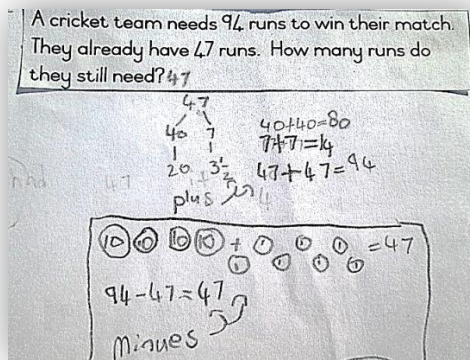 A cricket team needs 94 runs to win their match.
They already have 47 runs. How many runs do
they still need? 47
47
40 7
20 3½
40+40=80
7+7=14
47+47=94
plus
47
10 10 10 10 + 1 1 1 1 1 1 1 = 47
94-47=47
Minues